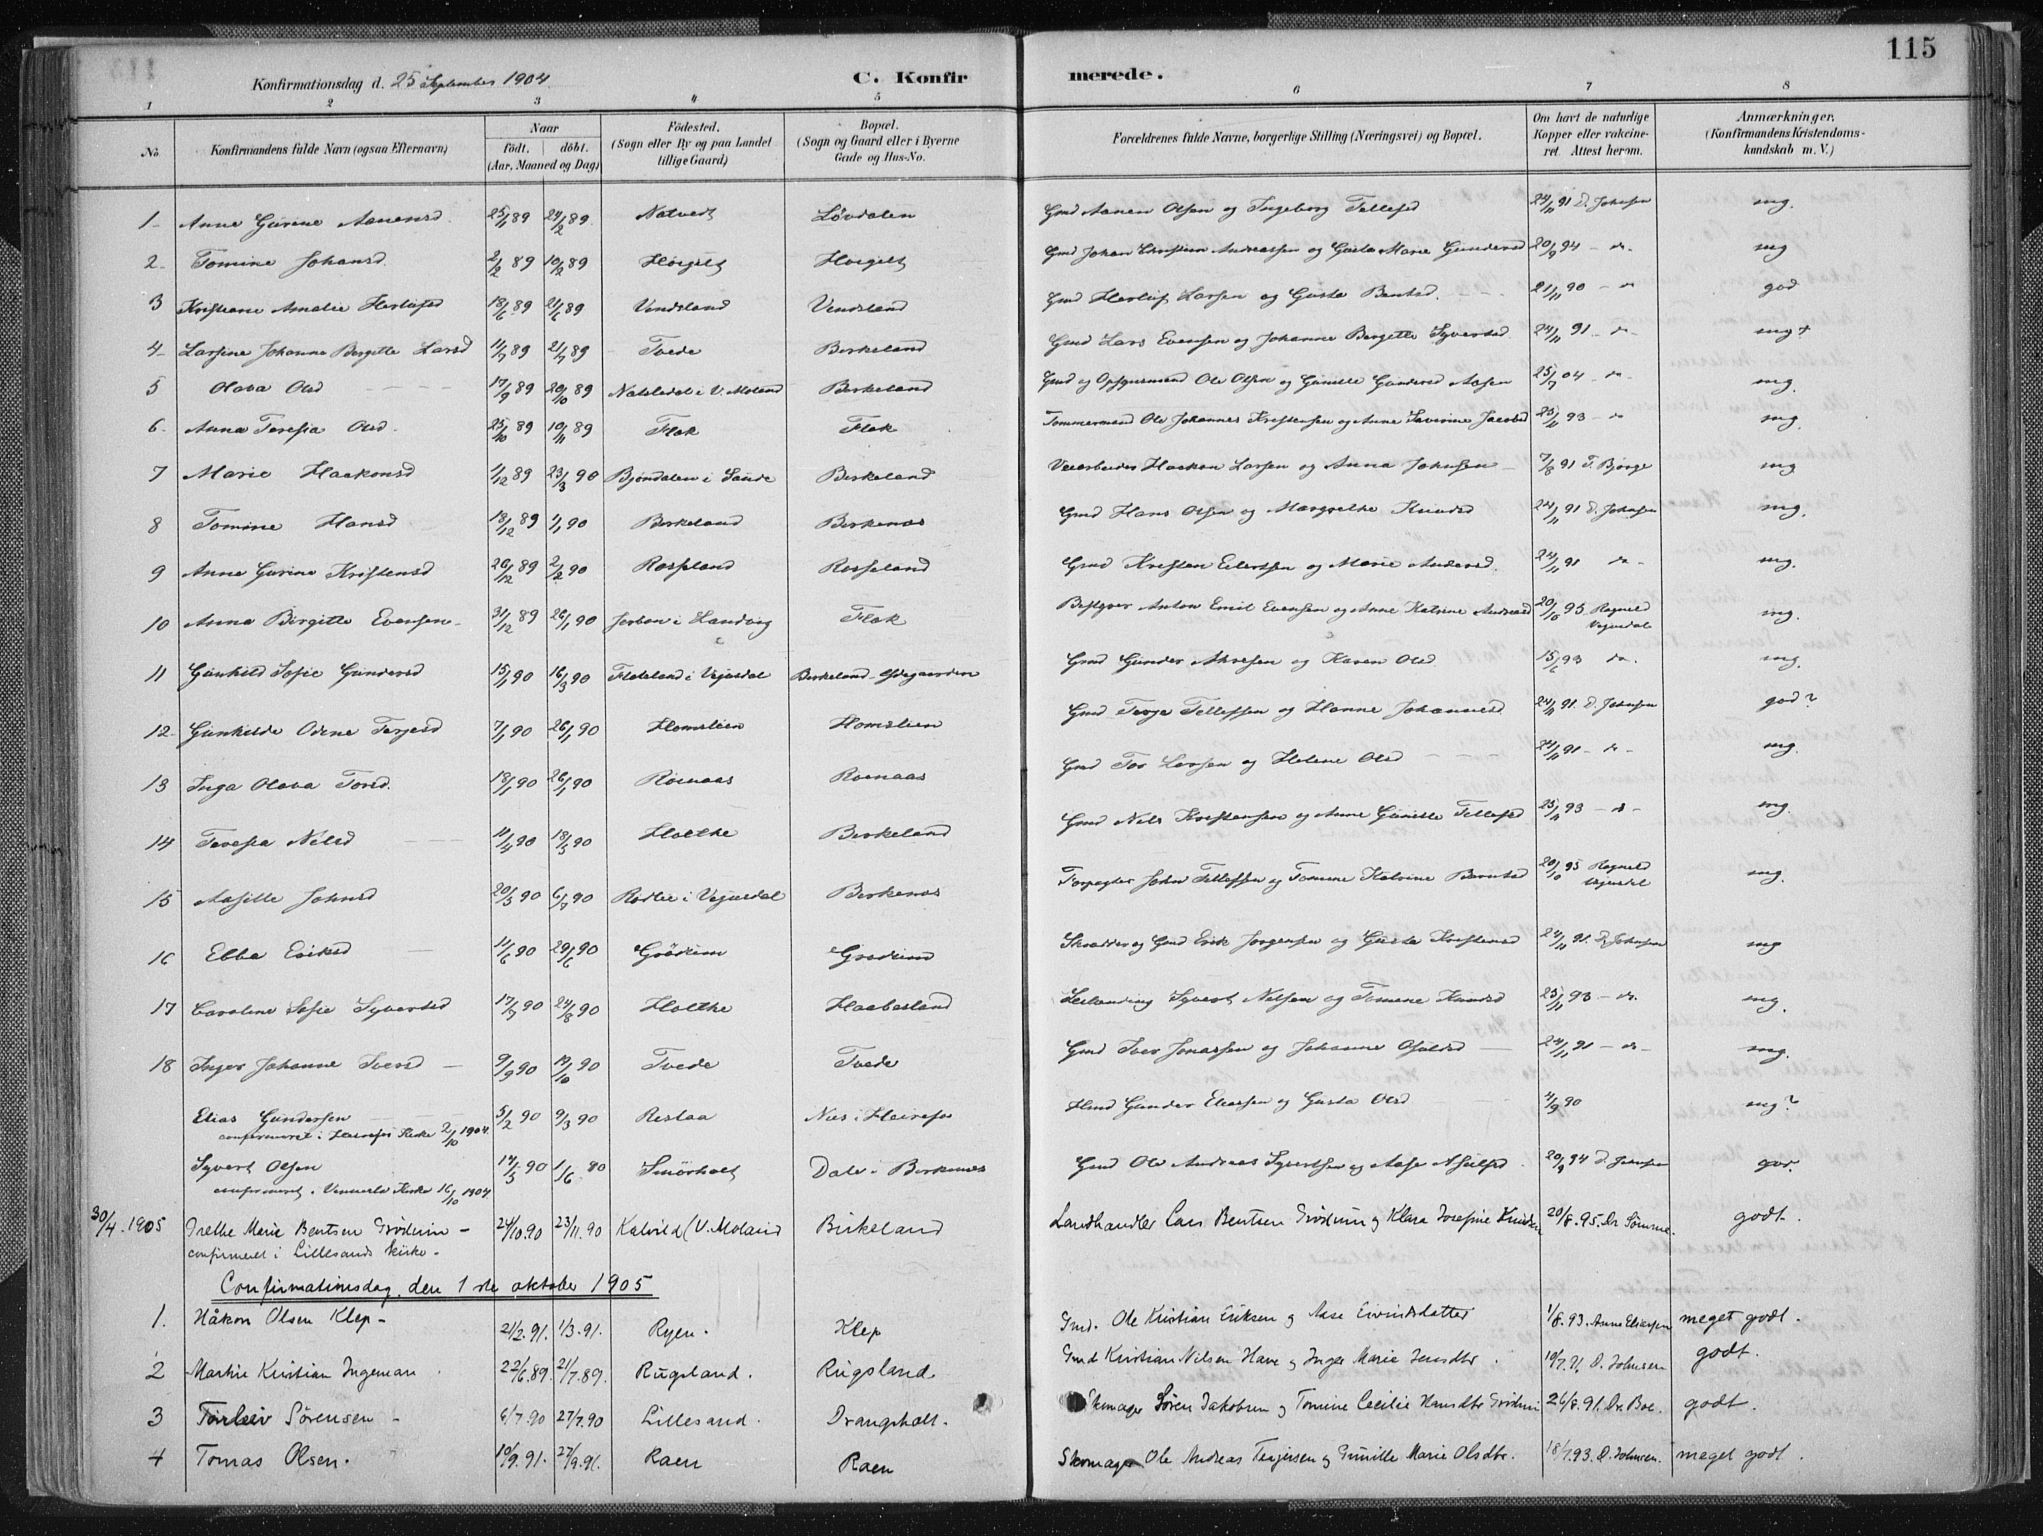 115
Konfirmationsdag d. 25 September 1904. C. Konfirmerede.
1 2 3 4 5 6 7 8
No. Konfirmandens fulde Navn (ogsaa Efternavn) Naar födt. döbt. (Aar, Maaned og Dag) Födested. (Sogn eller By og paa Landet tillige Gaard) Bopæl. (Sogn og Gaard eller i Byerne Gade og Hus-No. Forældrenes fulde Navne, borgerlige Stilling (Næringsvei) og Bopæl. Om havt de naturlige Kopper eller vakcineret Attest herom. Anmærkninger. (Konfirmandens Kristendomskundskab m. V.)
1 Anne Gurine Aanensd. 25/1 89 24/2 89 Natvedt Løvdalen Gmd Aanen Olsen og Ingeborg Tellefsd 24/11 91 D. Johnsen mg.
2 Tomine Johansd. 2/2 89 10/2 89 Høigilt Høigilt Gmd Johan Christian Andreassen og Gusta Marie Gundersd 20/9 94 - do. mg
3 Kristiane Amalie Herlofsd 18/6 89 21/6 89 Vendsland Vendsland Gmd Herlof Larsen og Gusta Bentsd. 21/11 90 - do god
4 Larsine Johanne Birgitte Larsd 11/7 89 21/7 89 Tvede Birkeland Gmd Lars Evensen og Johanne Birgitte Syvertsd 24/11 91 - do - mg+
5 Olava Olsd 17/9 89 20/10 89 Natsledal i V. Moland Birkeland Gmd og Opsynsmand Ole Olsen og Gunille Gundersd Aasen 25/7 04 - do - mg.
6 Anna Teresia Olsd. 25/10 89 10/11 89 Flak Flak Tømmermand Ole Johannes Kristensen og Anne Severine Jacobsd 25/11 93 - do mg.
7 Marie Haakonsd 1/12 89 23/3 90 Bjøndalen i Sande Birkeland Veiarbeider Haakon Larsen og Anna Johnsen 7/8 91 T. Bjorge mg
8 Tomine Hansd 18/12 89 1/1 90 Birkeland Birkenes Gmd Hans Olsen og Margrethe Knudsd 24/11 91 D. Johnsen mg.
9 Anne Gurine Kristensd 26/12 89 2/2 90 Rosseland Rosseland Gmd Kristen Eilertsen og Marie Andersd. 24/11 91 do - mg.
10 Anna Birgitte Evensen 31/12 89 26/1 90 i Landvig Flak Anton Emil Evensen og Anne Katrine Andreasd 20/10 95 Ragnild Vegusdal mg.
11 Gunhild Sofie Gundersd 15/1 90 16/3 90 Flateland i Vegusdal Birkeland Ødegaarden Gmd Gunder Alvesen og Karen Olsd 15/6 93 do. mg.
12 Gunhilde Odine Terjesd 7/1 90 26/1 90 Homslien Homslien Gmd Terje Tellefsen og Hanne Johannesd 24/11 91. D. Johnsen god?
13 Inga Olava Torsd. 18/1 90 26/1 90 Roenaas Roenaas Gmd Tor Larsen og Helene Olsd 24/11 91 - do - mg.
14 Teresia Nilsd 11/4 90 18/5 90 Holthe Birkeland Gmd Nils Kristensen og Anne Gunille Tellefsd 25/11 93 - do - mg.
15 Aasille Johnsd 20/5 90 6/7 90 Rødlie i Vegusdal Birkenes Forpagter John Tellefsen og Tomine Katrine Berntsd 20/10 95 Ragnild Vegusdal mg.
16 Ebba Eriksd 11/6 90 29/6 90 Grödum Grødum Skrædder og Gmd Erik Jørgensen og Gusta Kristensd 24/11 91. D. Johnsen mg
17 Caroline Sofie Syvertsd 17/7 90 24/8 90 Holthe Haabesland Leilænding Syvert Nilsen og Tomine Knudsd 25/11 93 - do. mg.
18 Inger Johanne Iversd 9/9 90 19/10 90 Tvede Tvede Gmd Iver Jonassen og Johanne Osuldsd 24/11 91 - do - mg.
Elias Gundersen 5/2 90 9/3 90 Restaa i Heirefos Hmd Gunder Eliassen og Gusta Olsd 4/9 90 mg?
confirmeret i Heirefos Kirke 2/10 1904.
Syvert Olsen 14/5 90 1/6 90 Smörholt Dale i Birkenes Gmd Ole Andreas Syvertsen og Aase Asulfsd. 20/9 94 D. Johnsen god.
confirmeret i Vennesla Kirke 16/10 1904.
30/4.1905 Grethe Marie Bentsen Grødum - 24/10.90 23/11.90 Kalvild (V. Moland Birkeland Landhandler Lars Bentsen Grødum og Klara Josefine Knudsen 20/8.95. Dr Sømme godt.
confirmeret i Lillesands kirke.
Confirmationsdag den 1ste oktober 1905
1. Håkon Olsen Klep - 21/2.91. 1/3.91. Ryen. Klep Gmd. Ole Kristian Eriksen og Aase Eivindsdatter 1/8.93. Anne Eliassen meget godt.
2 Martin Kristian Ingeman 22/6.89. 21/7.89. Rugsland. Rugsland Gmd Kristian Nilsen Have og Inger Marie Jensdtr. 19/7.91. D. Johnsen godt.
3 Torleiv Sörensen - 6/7.90 27/7.90 Lillesand. Drangsholt. Skomager Søren Jakobsen og Tomine Cecilie Hansdtr Grødum 26/8.91. Dr. Boe. godt.
4 Tomas Olsen. 10/9.91. 27/9.91. Raen Raen Skomager Ole Andreas Terjersen og Gunille Marie Olsdtr. 18/7.93. D. Johnsen. meget godt.